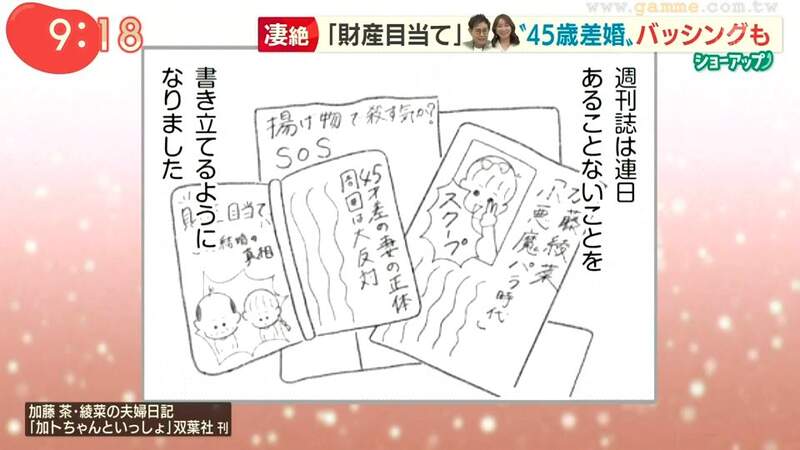 www.gamme.com.tw
9:18
凄絶 「財産目当て」 〝45歳差婚〟バッシングも
ショーアップ
週刊誌は連日
あることないことを
書き立てるように
なりました
揚げ物で殺す気か?
SOS
45才差の妻の正体
周回は大反対
目当て
結婚の
真相
スクープ
加藤綾菜
小悪魔パラ時代
加藤 茶・綾菜の夫婦日記
「加トちゃんといっしょ」双葉社 刊